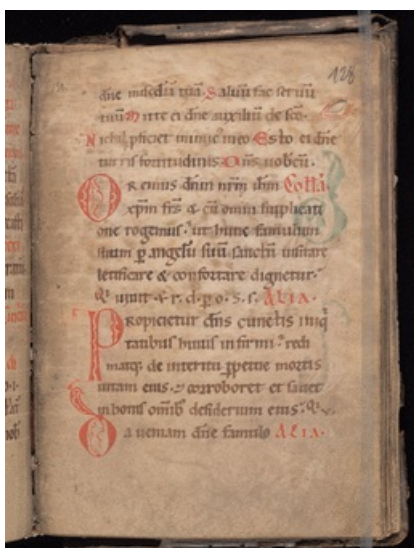 128
dñe miſcdiā tuā Saluū fac ſeruū
tuū Mitte ei dñe auxiliū de ſco.
Nichil pficiet inimic in eo Eſto ei dñe
turriſ fortitudiniſ Dñſ uobcū.
Oremuſ dñm nrm ihm Collā
xpm frſ & cū omni ſupplicati
one rogemuſ. ut hunc famulum
ſuum p angelū ſuū ſanctū uiſitare
letificare & confortare dignetur.
Q uiuit & r. d. p. o. s. s. ALIA.
Propicietur dñſ cunctiſ iniq
tatibuſ huiuſ infirmi. redi
matq; de interitu ppetue mortiſ
uitam eiuſ. & corroboret et ſaciet
in boniſ omib; deſiderium eiuſ.
Da ueniam dñe famulo ALIA.